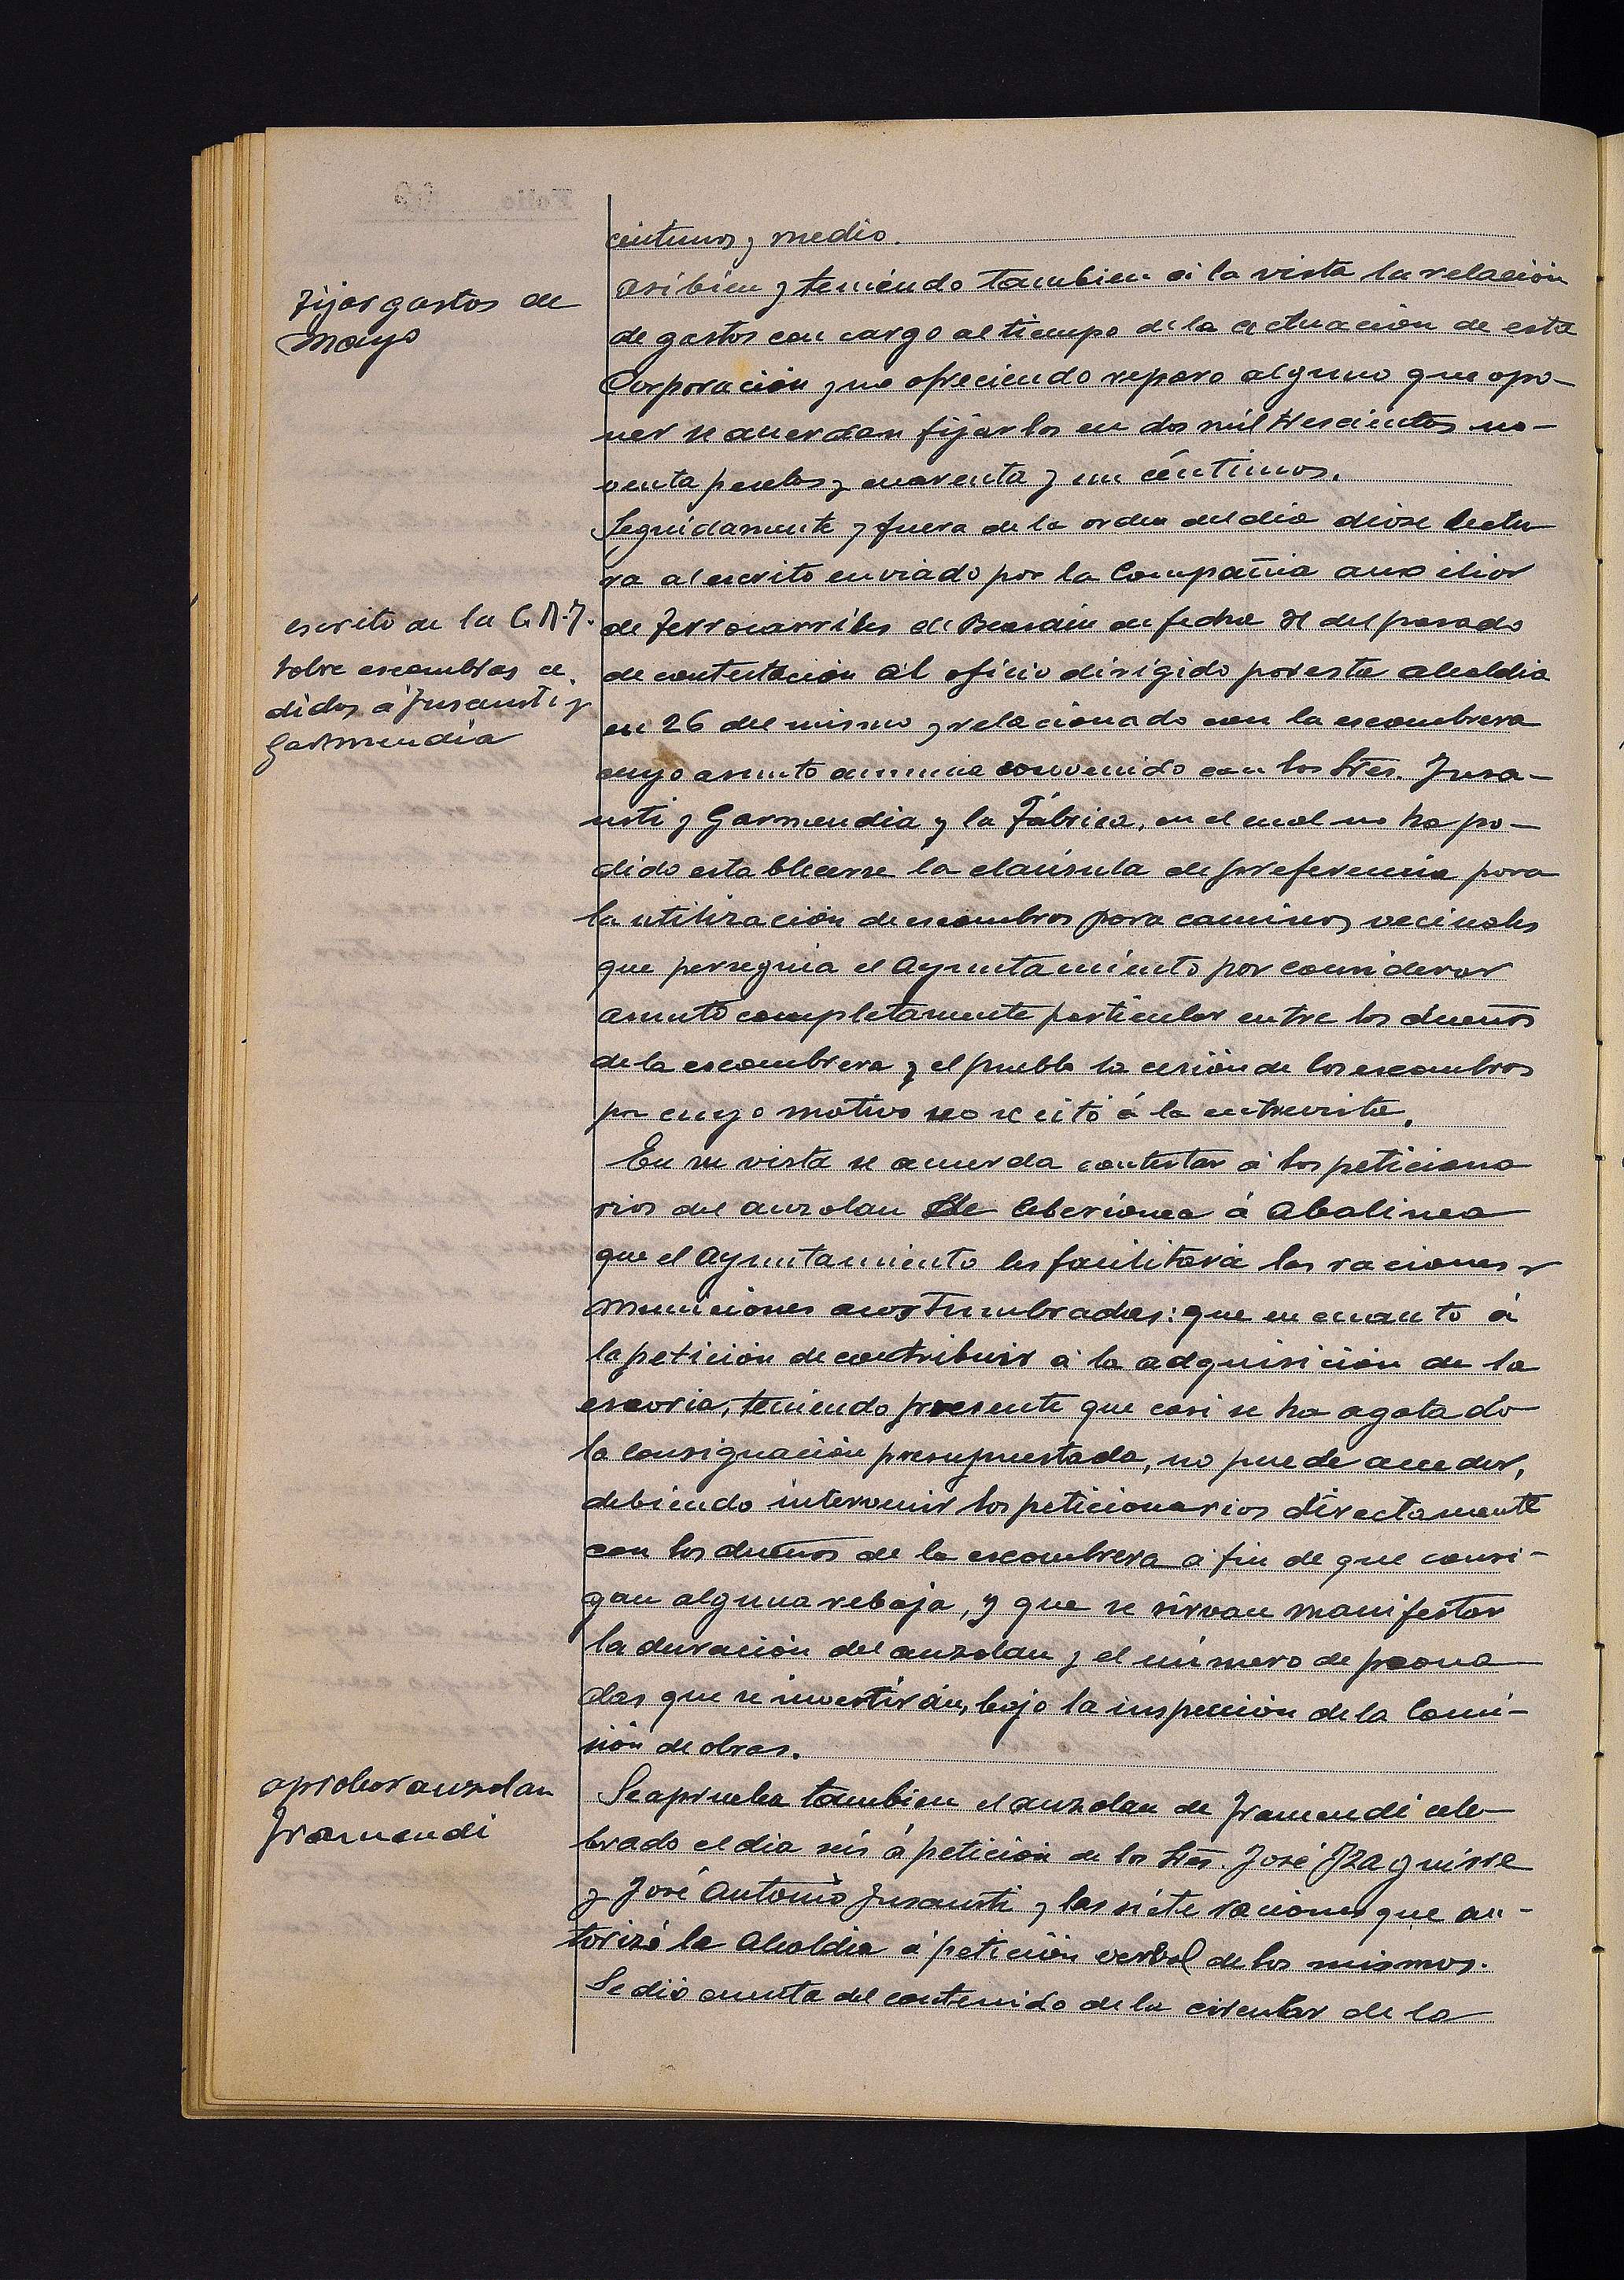 céntimos y medio.
Fijar gastos de
Mayo
Asi bien y teniendo tambien á la vista la relación
de gastos con cargo al tiempo de la actuación de esta
Corporación y no ofreciendo reparo alguno que opo-
ner se acuerdan fijarlos en dos mil trescientas no-
venta pesetas y cuarenta y un céntimos.
Seguidamente y fuera de la orden del dia diose lectu
ra al escrito enviado por la Compañia auxiliar
escrito de la C.A.F.
sobre escombros ce
didos á Insausti y
Garmendia
de Ferrocarriles de Beasain de fecha 31 del pasado
de contestación al oficio dirigido por esta alcaldia
en 26 del mismo y relacionado con la escombrera
cuyo asunto anuncia convenido con los Sres. Insa-
usti y Garmendia y la Fábrica, en el cual no ha po-
dido establecerse la claúsula de preferencia para
la utilización de escombros para caminos vecinales
que perseguia el Ayuntamiento por considerar
asunto completamente particular entre los dueños
de la escombrera y el pueblo la cesión de los escombros
por cuyo motivo no se citó á la entrevista.
En su vista se acuerda contestar á los peticiona
rios del auzolan de á Abalinea
que el Ayuntamiento les facilitará las raciones y
municiones acostumbradas: que en cuanto á
la petición de contribuir á la adquisición de la
escoria, teniendo presente que casi se ha agotado
la consignación presupuestada, no puede acceder,
debiendo intervenir los peticionarios directamente
con los dueños de la escombrera á fin de que consi-
gan alguna rebaja, y que se sirvan manifestar
la duración del auzolan y el número de peona
das que se invertirán, bajo la inspección de la Comi-
sión de obras.
aprobar auzolan
Iramendi
Se aprueba tambien el auzolan de Iramendi cele
brado el dia seis á petición de los Sres. José Yzaguirre
y José Antonio Insausti y las siete raciones que au-
torizó la Alcaldia á petición verbal de los mismos.
Se dió cuenta del contenido de la circular de la